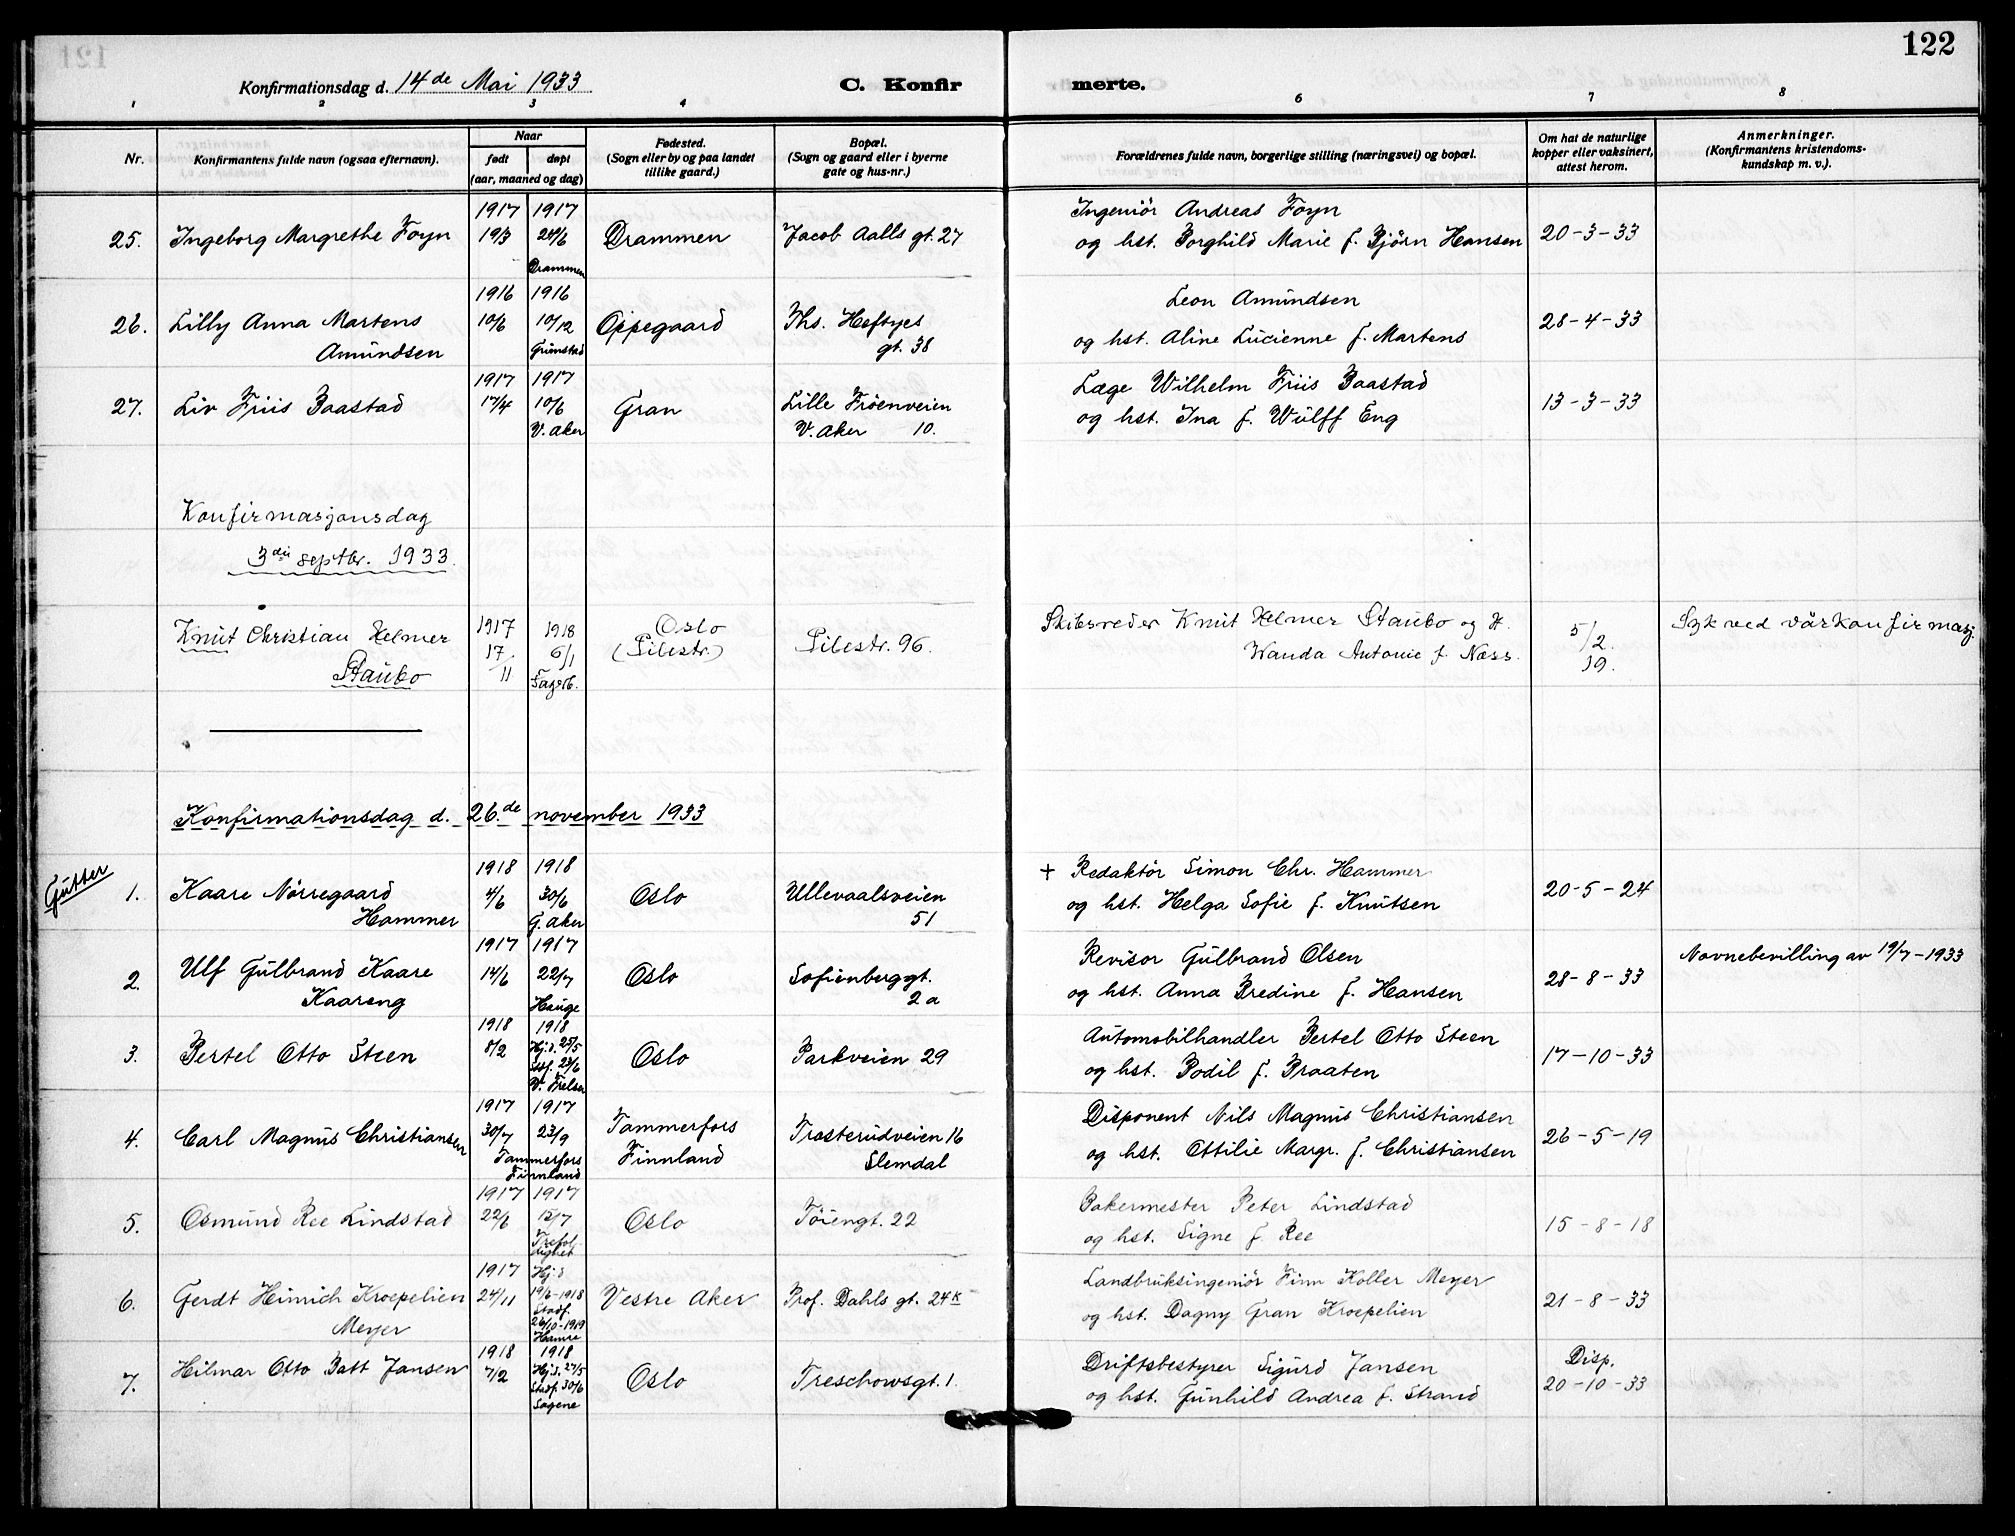 122
Konfirmationsdag d. 14de Mai 1933
C. Konfirmerte.
1 2 3 4 6 7 8
Nr.
Konfirmantens fulde navn (ogsaa efternavn).
Naar
født
døpt
(aar, maaned og dag)
Fødested.
(Sogn eller by og paa landet
tillike gaard.)
Bopæl.
(Sogn og gaard eller i byerne
gate og hus-nr.)
Forældrenes fulde navn, borgerlige stilling (næringsvei) og bopæl.
Om hat de naturlige
kopper eller vaksinert,
attest herom.
Anmerkninger.
(Konfirmantens kristendoms-
kundskap m. v.).
1917 1917 Ingeniör Andreas Foyn
25. Ingeborg Margrethe Foyn 19/3 24/6 Drammen Jacob Aalls gt. 27 og hst. Borghild Marie f. Björn Hansen 20-3-33
Drammen
1916 1916 Leon Amundsen
26. Lilly Anna Martens 10/6 10/12 Oppegaard Ths. Heftyes og hst. Aline Lucienne f. Martens 28-4-33
Amundsen Grimstad gt. 38
1917 1917 Læge Wilhelm Friis Baastad
27. Liv Friis Baastad 17/4 10/6 Gran Lille Fröenveien og hst. Ina f. Wulff Eng 13-3-33
V. Aker V. Aker 10.
Konfirmasjonsdag
3die septbr. 1933.
Knut Christian Helmer 1917 1918 Oslo Pilestr. 96. Skibsreder Knut Helmer Staubo og H. 5/2. Syk ved vårkonfirmasj.
Staubo 17. 6/1 (Pilestr.) Wanda Antonie f. Næss. 19.
11 Fagerb.
Konfirmationsdag d. 26.de november 1933
Gutter
1918 1918 + Redaktör Simon Chr. Hammer
1. Kaare Nörregaard 4/6 30/6 Oslo Ullevaalsveien og hst. Helga Sofie f. Knutsen 20-5-24
Hammer G. Aker 51
1917 1917 Revisor Gulbrand Olsen Navnebevilling av 19/7-1933
2. Ulf Gulbrand Kaare 14/6 22/7 Oslo Sofienberggt. og hst. Anna Bredine f. Hansen 28-8-33
Kaareng Hauge 2 a
1918 1918 Automobilhandler Bertel Otto Steen
3. Bertel Otto Steen 8/2 Hj.d. 25/5 Oslo Parkveien 29 og hst. Bodil f. Braaten 17-10-33
Stadf. 23/6
V. Frelser
1917 1917 Tammerfors Disponent Nils Magnus Christiansen
4. Carl Magnus Christiansen 30/7 23/9 Finnland Trosterudveien 16 og hst. Ottilie Margr. f. Christiansen 26-5-19
Tammerfors Slemdal
Finnland
1917 1917 Bakermester Peter Lindstad
5. Osmund Ree Lindstad 22/6 15/7 Oslo Töiengt. 22 og hst. Signe f. Ree 15-8-18
Trefol-
dighet
1917 Hj.d Landbruksingeniör Finn Koller Meyer
6. Gerdt Heinrich Kroepelien 24/11 19/6-1918 Vestre Aker Prof. Dahls gt. 24K og hst. Dagny Gran Kroepelien 21-8-33
Meyer Stadf.
26/10-1919
Hamre
1918 1918 Driftsbestyrer Sigurd Jansen Disp.
7. Hilmar Otto Batt Jansen 7/2 Hj.d. 27/5 Oslo Treschowsgt. 1. og hst. Gunhild Andrea f. Strand 20-10-33
Stadf. 30/6
Sagene